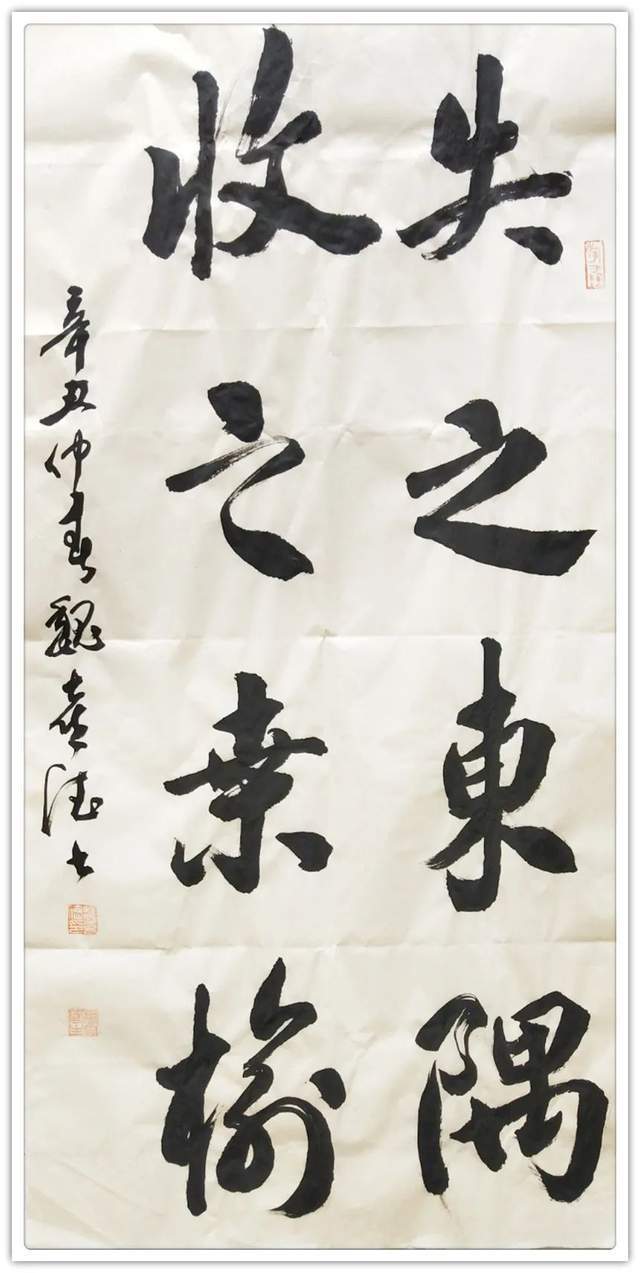 失之東隅
收之桑榆
辛丑仲春魏喜德书